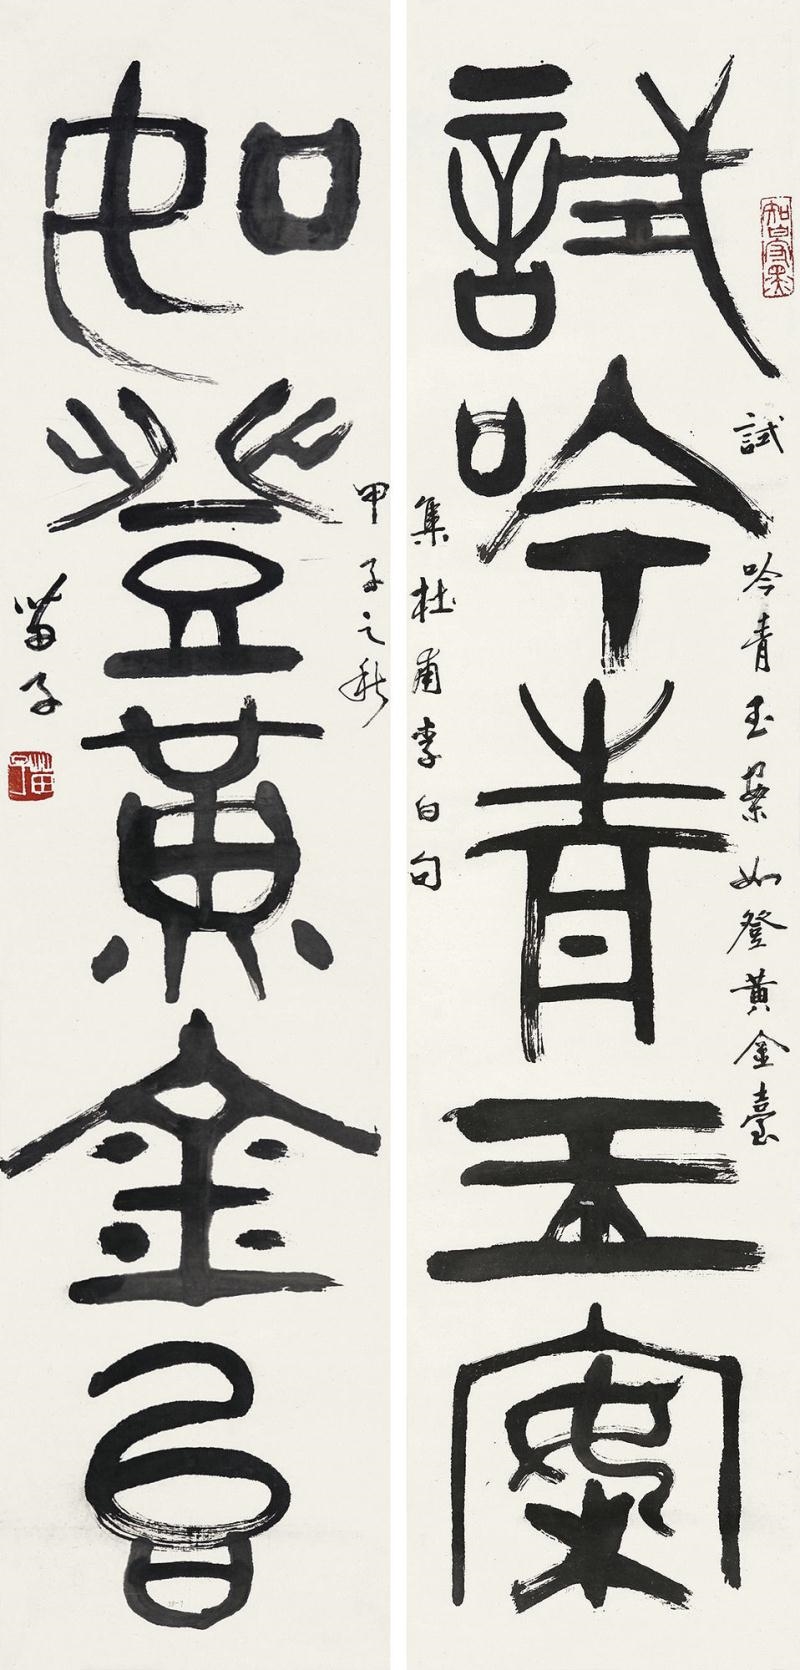 試吟青玉案
試吟青玉案如登黃金臺
集杜甫李白句
知白守黑
如登黃金台
甲子之秋
苗子
苗子